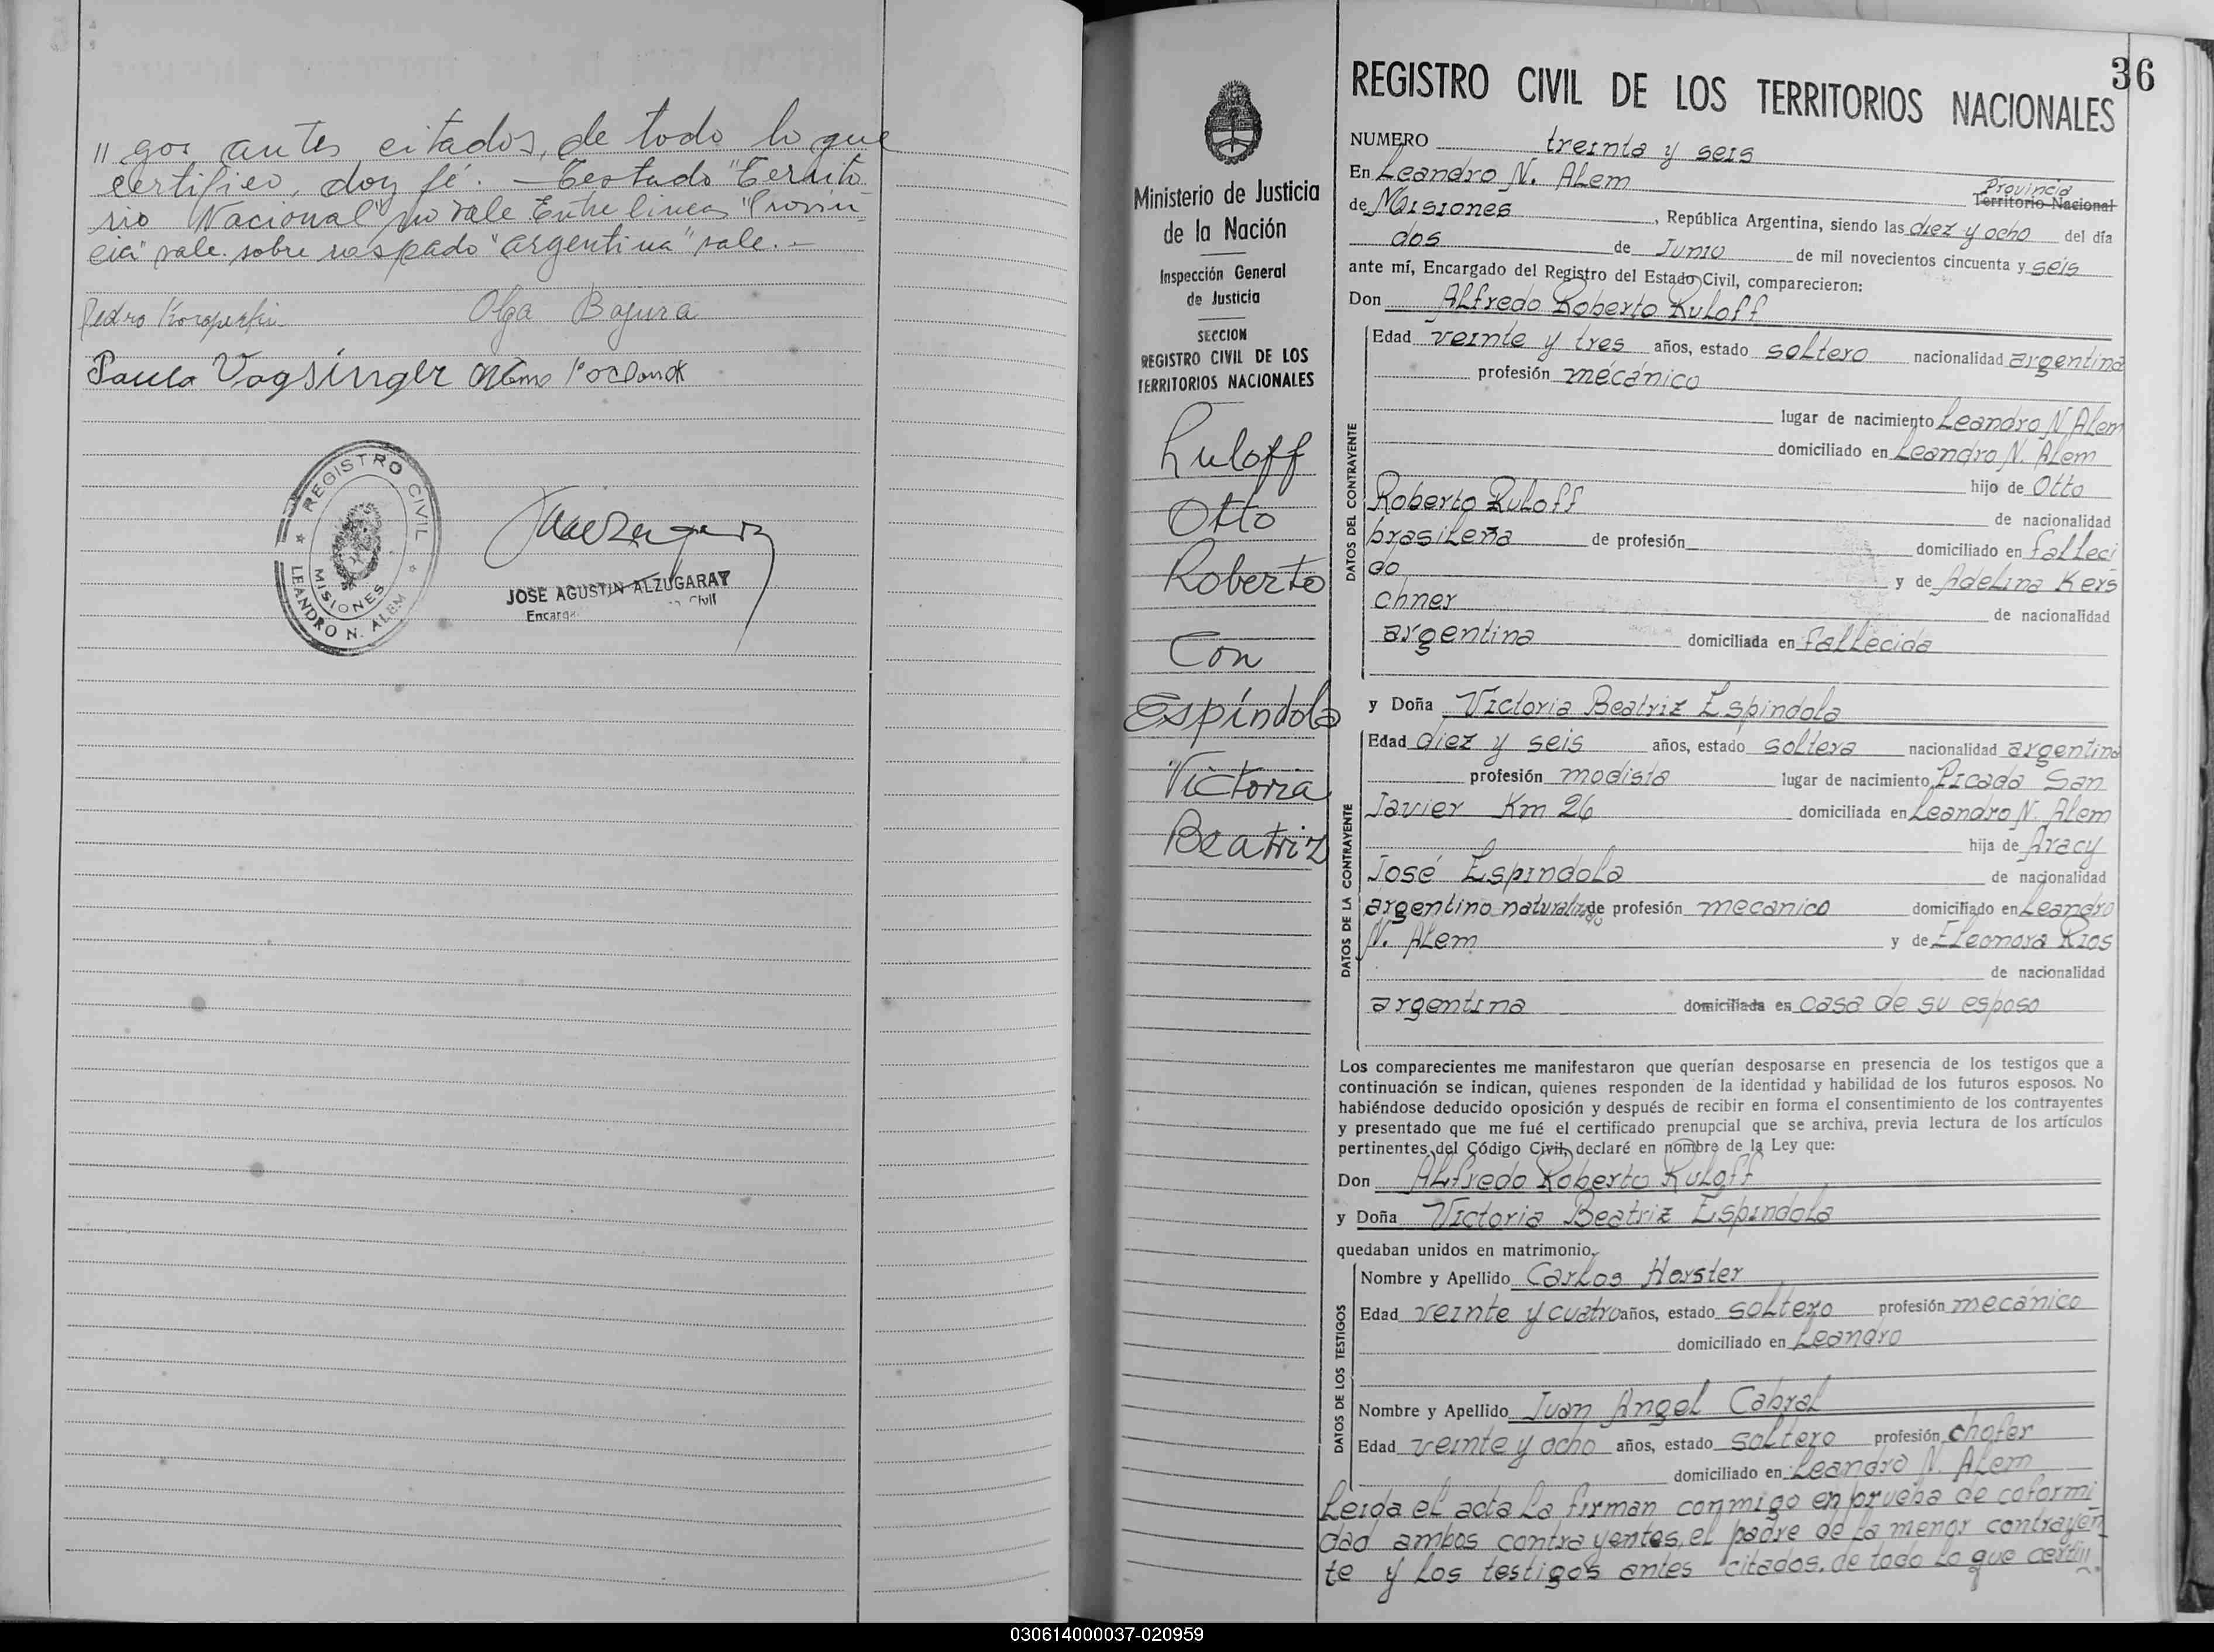 " gos antes citados, de todo lo que
certifico, doy fé. — Testado "Territo
rio Nacional" no vale Entre lineas "Provin
cia" vale. sobre raspado "argentina" vale. —
Pedro
Olga Bajura
Paula
REGISTRO CIVIL
MISIONES
LEANDRO N. ALEM
JOSE AGUSTIN ALZUGARAY
Encarga Civil
36
Ministerio de Justicia
de la Nación
Inspección General
de Justicia
SECCION
REGISTRO CIVIL DE LOS
TERRITORIOS NACIONALES
Ruloff
Otto
Roberto
Con
Espíndola
Victoria
Beatriz
REGISTRO CIVIL DE LOS TERRITORIOS NACIONALES
NUMERO treinta y seis
En Leandro N. Alem Provincia
Territorio Nacional
de Misiones, República Argentina, siendo las diez y ocho del día
dos de Junio de mil novecientos cincuenta y seis
ante mí, Encargado del Registro del Estado Civil, comparecieron:
Don Alfredo Roberto Ruloff
DATOS DEL CONTRAYENTE
Edad veinte y tres años, estado soltero nacionalidad argentina
profesión mecánico
lugar de nacimiento Leandro N Alem
domiciliado en Leandro N. Alem
hijo de Otto
Roberto Ruloff de nacionalidad
brasileña de profesión domiciliado en falleci
do y de Adelina Kers
chner de nacionalidad
argentina domiciliada en fallecida
y Doña Victoria Beatriz Espindola
DATOS DE LA CONTRAYENTE
Edad diez y seis años, estado soltera nacionalidad argentina
profesión modista lugar de nacimiento Picada San
Javier Km 26 domiciliada en Leandro N. Alem
hija de Aracy
José Espindola de nacionalidad
argentino naturalizado de profesión mecanico domiciliado en Leandro
N. Alem y de Eleonora Rios
de nacionalidad
argentina domiciliada en casa de su esposo
Los comparecientes me manifestaron que querían desposarse en presencia de los testigos que a
continuación se indican, quienes responden de la identidad y habilidad de los futuros esposos. No
habiéndose deducido oposición y después de recibir en forma el consentimiento de los contrayentes
y presentado que me fué el certificado prenupcial que se archiva, previa lectura de los artículos
pertinentes del Código Civil, declaré en nombre de la Ley que:
Don Alfredo Roberto Ruloff
y Doña Victoria Beatriz Espindola
quedaban unidos en matrimonio.
DATOS DE LOS TESTIGOS
Nombre y Apellido Carlos Horster
Edad veinte y cuatro años, estado soltero profesión mecánico
domiciliado en Leandro
Nombre y Apellido Juan Angel Cabral
Edad veinte y ocho años, estado soltero profesión chofer
domiciliado en Leandro N. Alem
Leida el acta la firman conmigo en prueba de coformi
dad ambos contrayentes, el padre de la menor contrayen
te y los testigos antes citados, de todo lo que certi
030614000037-020959